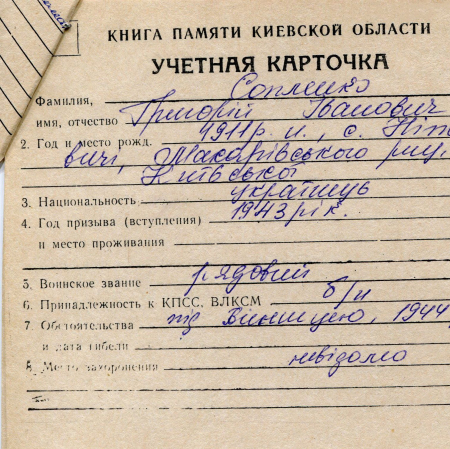 КНИГА ПАМЯТИ КИЕВСКОЙ ОБЛАСТИ
УЧЕТНАЯ КАРТОЧКА
Фамилия,
имя, отчество Григорій Іванович
2. Год и место рожд. 1911 р. н., с.
Макарівського
Київської
3. Национальность українець
4. Год призыва (вступления) 1943 рік.
и место проживания
5. Воинское звание рядовий
6. Принадлежность к КПСС. ВЛКСМ б/п
7. Обстоятельства під Вінницею, 1944
и дата гибели
8. Место захоронения невідомо